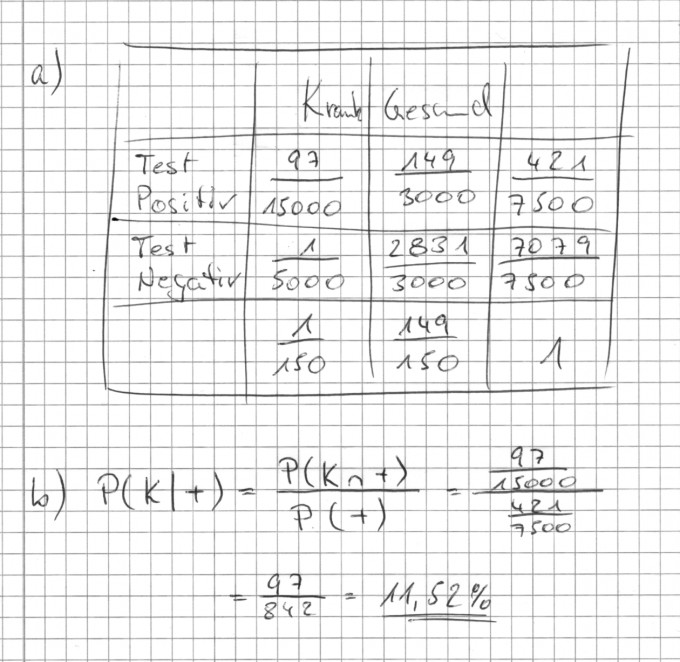 a)
Krank Gesund
Test Positiv 97/15000 149/3000 421/7500
Test Negativ 1/5000 2831/3000 7079/7500
1/150 149/150 1
b) P(K|+) = P(K∩+)/P(+) = (97/15000)/(421/7500)
= 97/842 = 11,52%